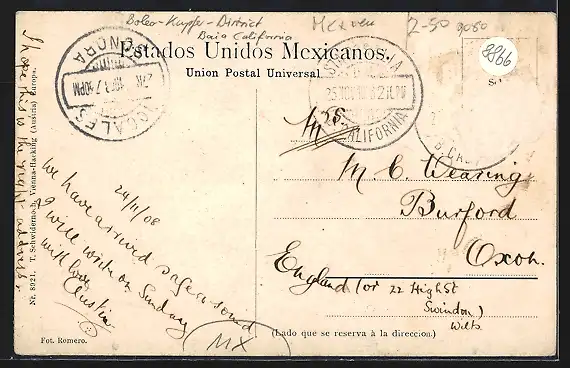 Boleo-Kupfer-District
Baja California
Mexico
2-50
9080
8866
Estados Unidos Mexicanos.
Union Postal Universal.
NOGALES
SONORA
CALIFORNIA
Mrs
M. C. Wearing
Burford
Oxon.
England (or 22 High St
Swindon)
Wilts
24/11/08
We have arrived safe & sound
I will write on Sunday
with love
Austin
MX
I hope this is the right address.
Nr. 8921. T. Schwidernoch, Vienna-Hacking (Austria) Europa.
Fot. Romero.
(Lado que se reserva à la direccion.)